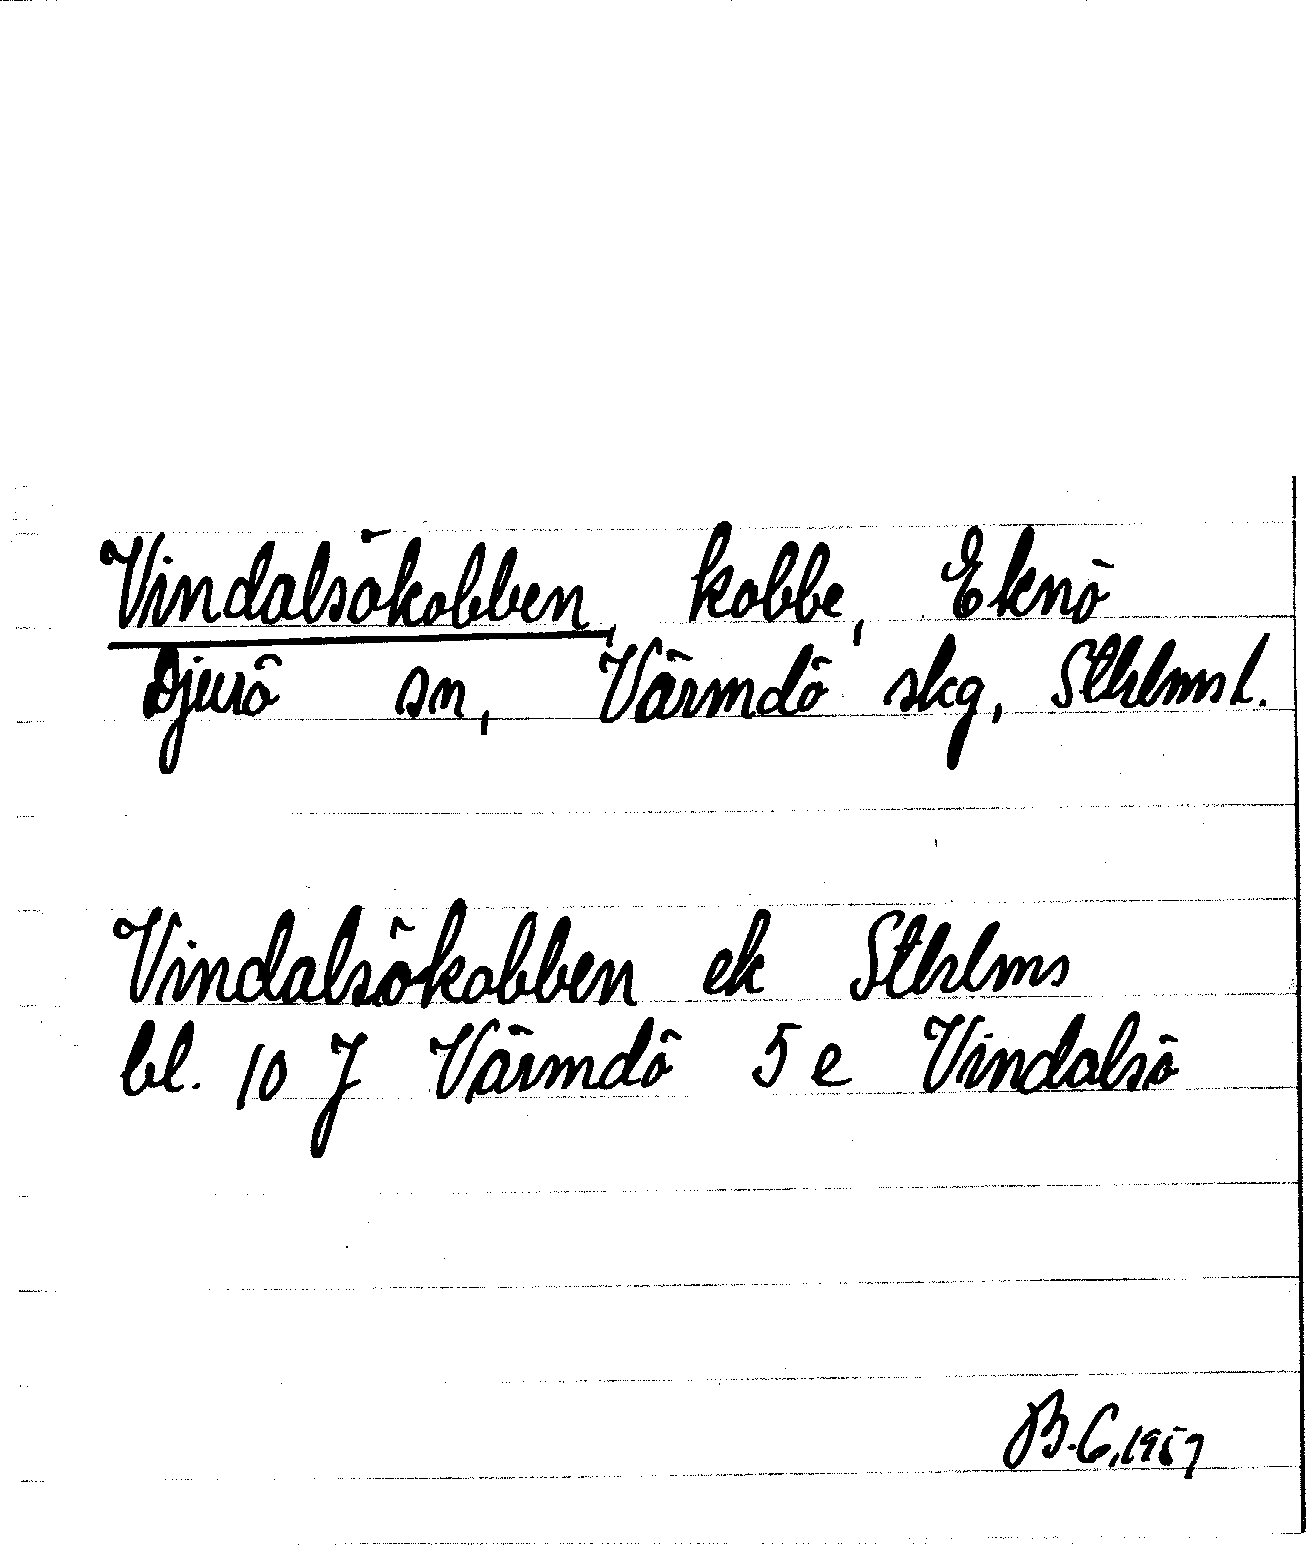 Vindalsökobben, kobbe, Eknö
Djurö sn, Värmdö skg, Sthlms l.
Vindalsökobben ek Sthlms
bl. 10 J Värmdö 5 e Vindalsö
B.G. 1957